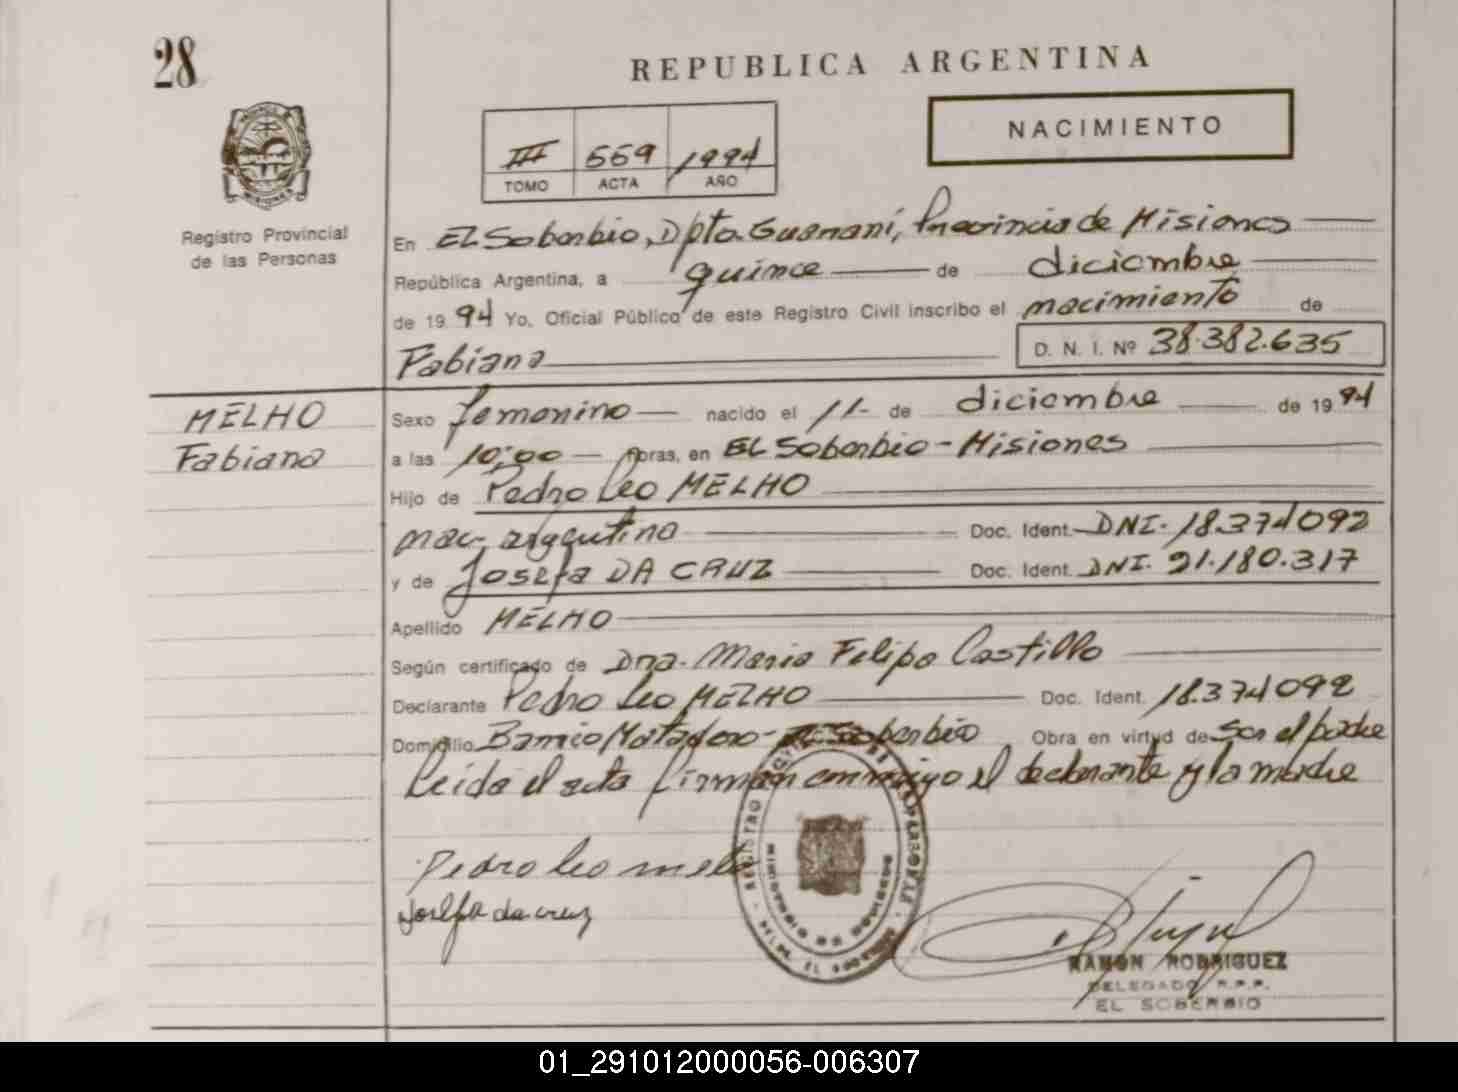 28
REPUBLICA ARGENTINA
NACIMIENTO
III 559 1994
TOMO ACTA AÑO
Registro Provincial
de las Personas
En EL Soberbio, Dpto. Guaraní, Provincia de Misiones
República Argentina, a quince de diciembre
de 1994 Yo, Oficial Público de este Registro Civil inscribo el nacimiento de
Fabiana D. N. I. Nº 38.382.635
MELHO
Fabiana
Sexo femenino nacido el 11- de diciembre de 1994
a las 10:00 horas, en EL Soberbio - Misiones
Hijo de Pedro Leo MELHO
nac. argentina Doc. Ident. DNI. 18.374092
y de Josefa DA CRUZ Doc. Ident. DNI. 21.180.317
Apellido MELHO
Según certificado de Dra. Maria Felipa Castillo
Declarante Pedro Leo MELHO Doc. Ident. 18.374092
Domicilio Barrio Matadero - El Soberbio Obra en virtud de Ser el padre
Leída el acta firman conmigo el declarante y la madre
Pedro leo melo
Josefa da cruz
REGISTRO PROVINCIAL DE LAS PERSONAS
MINISTERIO DE GOBIERNO
DELEG. EL SOBERBIO
RAMON RODRIGUEZ
DELEGADO R.P.P.
EL SOBERBIO
01_291012000056-006307